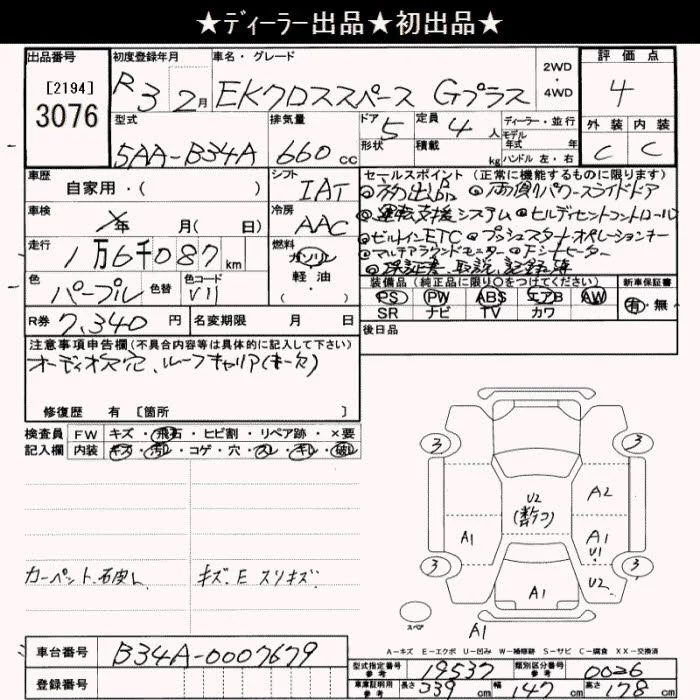 ★ディーラー出品★初出品★
出品番号 初度登録年月 車名・グレード 2WD・4WD 評価点
[2194] 3076 R3 2月 EKクロススペース Gプラス 4
型式 排気量 ドア 定員 ディーラー・並行 外装 内装
5AA-B34A 660cc 5 4人 モデル年式 年式 C C
形状 積載 kg ハンドル 左・右
車歴 シフト セールスポイント (正常に機能するものに限ります)
自家用・( ) IAT ◎初出品 ◎両側パワースライドドア
車検 年 月(日) 冷房 AAC ◎運転支援システム ◎ヒルディセントコントロール
走行 1万6千087km 燃料 ガソリン ◎ビルトインETC ◎プッシュスタートオペレーションキー
軽・油 ・( ) ◎マルチアラウンドモニター ◎Fシートヒーター
◎保証書、取説、記録簿
色 パープル 色替 色コード V11
装備品 (純正品に限り○をつけてください) 新車保証書
PS PW ABS エアB AW 有・無
SR ナビ TV カワ
R券 7,340円 名変期限 月 日 後日品
注意事項申告欄(不具合内容等は具体的に記入して下さい)
オーディオ欠穴、ルーフキャリア(キー欠)
修復歴 有 [箇所 ]
検査員 FW キズ・飛石・ヒビ割・リペア跡・×要
記入欄 内装 キズ・汚レ・コゲ・穴・スレ・キレ・破レ
3 3
U2
A2
A1 A1
U1
3 3
U2
A1
スペア
A1
カーペット、 キズ、E スリキズ
A-キズ E-エクボ U-凹み W-補修跡 S-サビ C-腐食 XX-交換済
車台番号 B34A-0007679
型式指定番号 参考 19537 類別区分番号 参考 0026
登録番号
車庫証明用 参考 長さ 339cm 幅 147cm 高さ 178cm